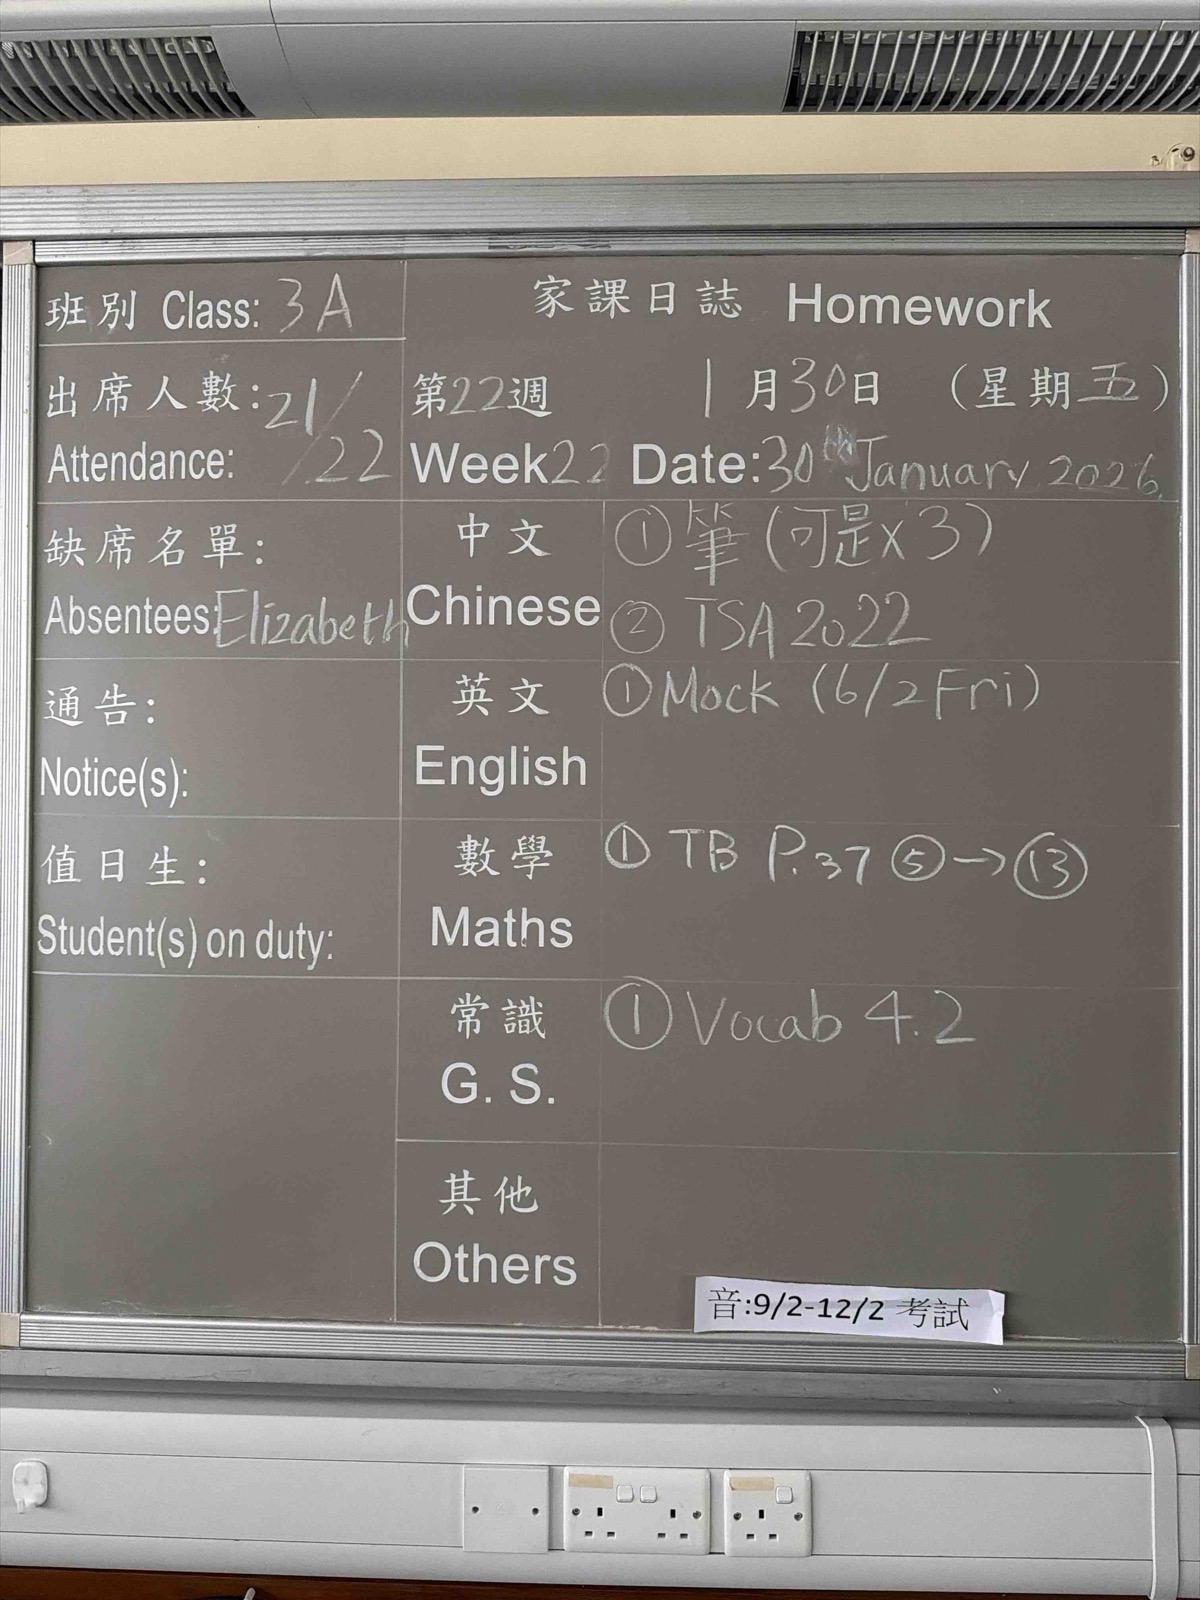 班別 Class: 3A
家課日誌 Homework
出席人數: 21/22
Attendance:
第22週 1月30日 (星期五)
Week 22 Date: 30th January 2026.
缺席名單:
Absentees: Elizabeth
中文
Chinese
① 筆 (可是x3)
② TSA 2022
通告:
Notice(s):
英文
English
① Mock (6/2 Fri)
值日生:
Student(s) on duty:
數學
Maths
① TB P.37 ⑤→⑬
常識
G. S.
① Vocab 4.2
其他
Others
音:9/2-12/2 考試